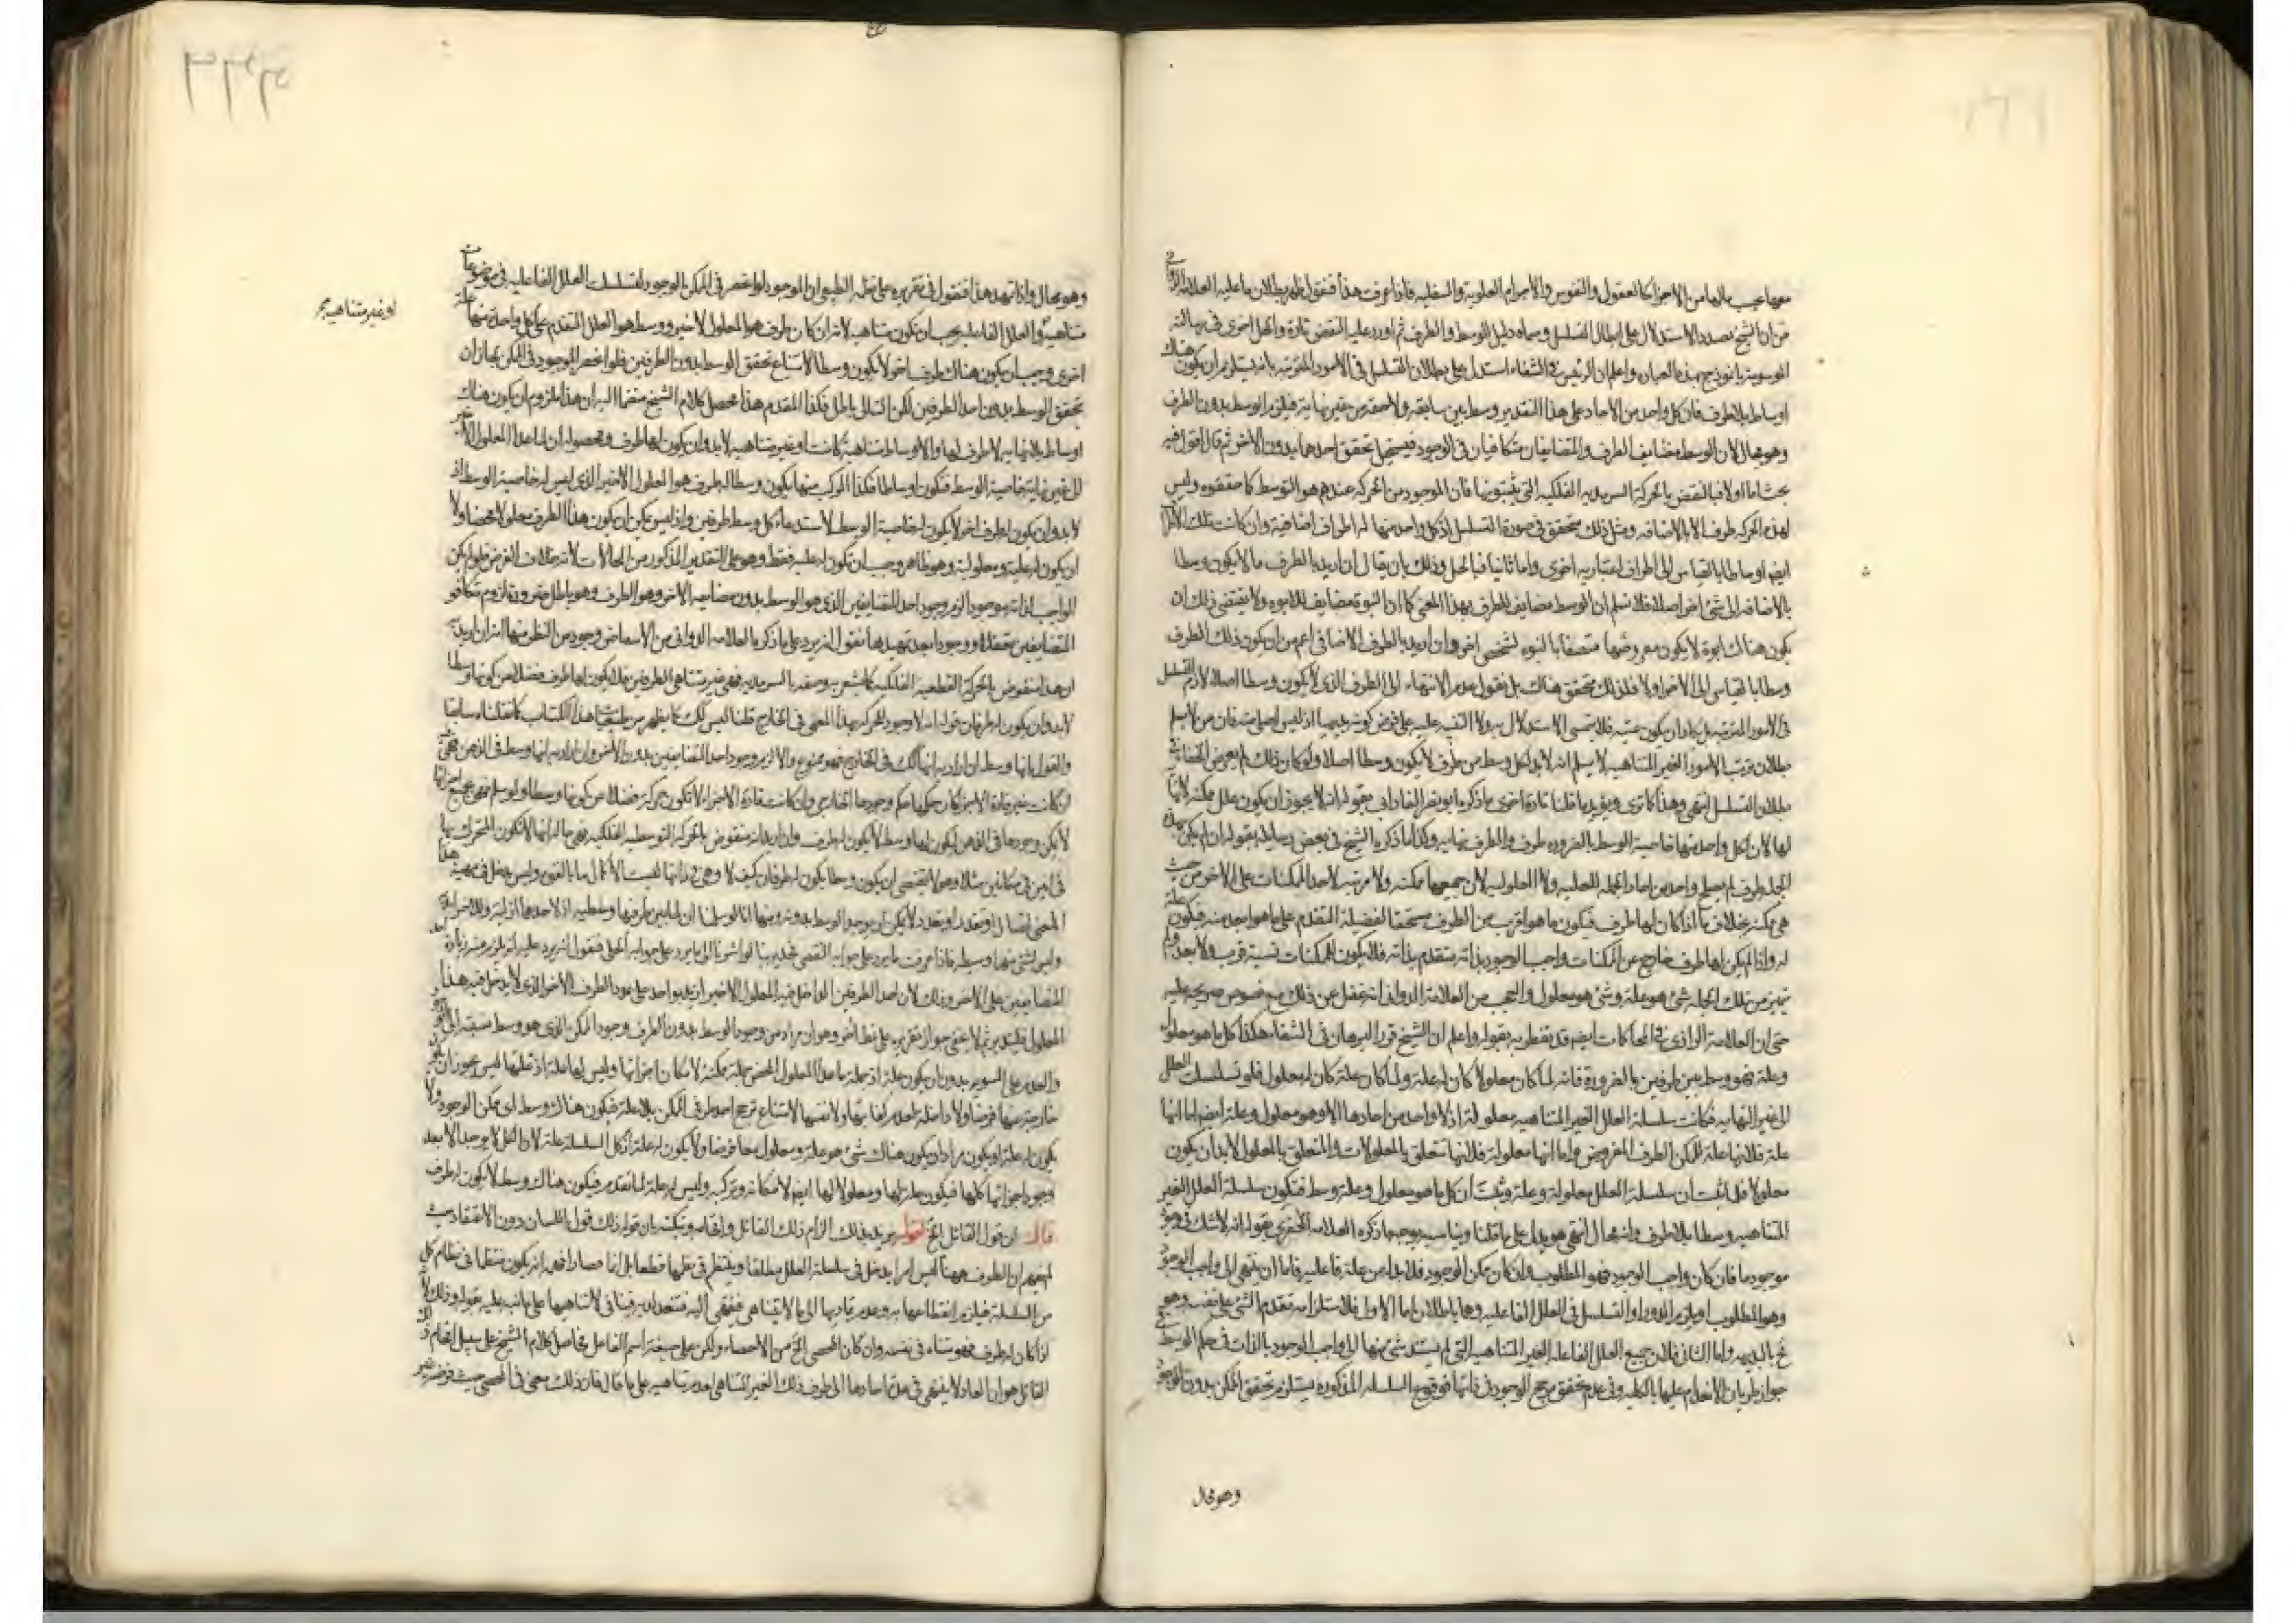 معها يجب بالها من الاجزا كالعقول والنفوس والاجرام العلوية والسفليه فاذا عرفت هذا فنقول ظهر بطلان ما عليه العلامة الدواني
من ان الشيخ بصدد الاستدلال على ابطال التسلسل وسماه دليل الوسط والطرف ثم اورد عليه النقض تارة والحل اخرى في رسالته
بانموذج بهذه العباره واعلم ان الرئيس في الشفاء استدل على بطلان التسلسل في الامور المترتبه بانه يستلزم ان يكون هناك
اوساط بلا طرف فان كل واحد من الاحاد على هذا التقدير وسط بين سابقه ولاحقه من غير نهاية فيلزم الوسط بدون الطرف
وهو محال لان الوسط مضايف للطرف والمتضايفان متكافيان في الوجود فيستحيل تحقق احدهما بدون الاخر ثم قال اقول فيه
بحث اما اولا فبالنقض بالحركة السرمديه الفلكيه التي يثبتونها فان الموجود من الحركة عندهم هو التوسط كما حققوه وليس
لهذه الحركه طرف الا بالاضافه ومثل ذلك متحقق في صورة التسلسل اذ كل واحد منها له اطراف اضافية وان كانت تلك
ايضا اوساطا بالقياس الى اطراف اعتباريه اخرى واما ثانيا فبالحل وذلك بان يقال ان اريد بالطرف ما لا يكون وسطا
بالاضافه الى شئ اخر اصلا فلا نسلم ان الوسط مضايف للطرف بهذا المعنى كما ان البنوة مضايف للابوه ولا يقتضى ذلك ان
يكون هناك ابوة لا يكون معروضها متصفا بالبنوه لشخص اخر وان اريد بالطرف الاضافى اعم من ان يكون ذلك الطرف
وسطا بالقياس الى الاخر اولا فلذلك متحقق هناك بل نقول عدم الانتهاء الى الطرف الذى لا يكون وسطا اصلا لازم التسلسل
في الامور المترتبه بل يكاد ان يكون عينه فلا يتمشى الاستدلال به ولا التنبيه عليه على فرض كونه بديهيا اذ ليس اجلى منه فان من لا يسلم
بطلان ترتب الامور الغير المتناهيه لا يسلم انه لا بد لكل وسط من طرف لا يكون وسطا اصلا ولو كان ذلك لم يعرض الخفا في
بطلان التسلسل انتهى وهذا كما ترى ويؤيد ما قلنا تارة اخرى ما ذكره ابو نصر الفارابي بقوله انه لا يجوز ان يكون علل ممكنه لا نهاية
لها لان لكل واحد منها خاصية الوسط بالضروره طرف والطرف نهايه وكذا ما ذكره الشيخ في بعض رسايله بقوله ان لم يكن لهذه
الجملة طرف لم يصلح واحد من احاد الجمله للعليه ولا المعلوليه لان جميعها ممكنه ولا مرتبه لاحد الممكنات على الاخر من حيث
هي ممكنه بخلاف ما اذا كان لها طرف فيكون ما هو اقرب من الطرف مستحقا لفضيلة المتقدم على ما هو ابعد منه فيكون علة
له واذا لم يكن لها طرف خارج عن الممكنات واجب الوجود بذاته متقدم بذاته فلا يكون للممكنات نسبة قرب ولا بعد ولم
يتميز من تلك الجملة شئ هو علة وشئ هو معلول والعجب من العلامة الدوانى انه غفل عن ذلك مع نصوص صريحه عليه
حتى ان العلامة الرازي في المحاكمات ايضا قد تفطن به بقوله واعلم ان الشيخ قرر البرهان في الشفاء هكذا كل ما هو معلول
وعلة فهو وسط بين طرفين بالضرورة فانه لما كان معلولا كان له علة ولما كان علة كان له معلول فلو تسلسلت العلل
الى غير النهايه فكانت سلسلة العلل الغير المتناهيه معلولة اذ لا واحد من احادها الا وهو معلول وعلة ايضا اما انها
علة فلانها علة للممكن الطرف المفروض واما انها معلولة فلانها تتعلق بالمعلولات والمتعلق بالمعلول لا بد ان يكون
معلولا فقد ثبت ان سلسلة العلل معلولة وعلة وثبت ان كل ما هو معلول وعلة وسط فتكون سلسلة العلل الغير
المتناهيه وسطا بلا طرف وانه محال انتهى هو يدل على ما قلنا ويناسبه بوجه ما ذكره العلامة الخفرى بقوله انه لا شك في وجود
موجود ما فان كان واجب الوجود فهو المطلوب وان كان ممكن الوجود فلا بد له من علة فاعليه فاما ان ينتهى الى واجب الوجود
وهو المطلوب او يلزم الدور او التسلسل في العلل الفاعليه وهما باطلان اما الاول فلاستلزامه تقدم الشئ على نفسه وهو
مح بالبديهه واما الثاني فلان جميع العلل الفاعليه الغير المتناهيه التي لم يستند شئ منها الى واجب الوجود بالذات في حكم الوسط في
جواز طريان الانعدام عليها بالكليه وفي عدم تحقق مرجح الوجود في ذاتها فوقوع السلسله المذكوره يستلزم تحقق الممكن بدون المرجح
وهو محال
وهو محال واذا تمهد هذا فنقول في تقريره على نقله الطبيعي ان الموجود لو انحصر في الممكن بالوجود لتسلسلت العلل الفاعليه في موضوعات
متناهية والعلل الفاعليه يجب ان يكون متناهيه لانه ان كان طرف هو المعلول الاخير ووسط هو العلل المتقدم على كل واحد منها علة
او غير متناهيه صح
اخرى وجب ان يكون هناك طرف اخر لا يكون وسطا لامتناع تحقق الوسط بدون الطرفين فلو انحصر الموجود في الممكن لجاز ان
تحقق الوسط بدون احد الطرفين لكن التالى باطل فكذا المقدم هذا محصل كلام الشيخ منضما اليه ان هذا ملزوم ان يكون هناك
اوساط بلا نهايه لا طرف لها والاوساط متناهية كانت او غير متناهيه لا بد وان يكون لها طرف ومحصوله ان لما عدا المعلول الاخير
لا الى نهاية خاصية الوسط فيكون اوساطا فكذا المركب منها يكون وسطا له طرف هو المعلول الاخير الذى ليس له خاصية الوسط اذ
لا بد وان يكون له طرف اخر لا يكون له خاصية الوسط لاستدعاء كل وسط طرفين واذ ليس يمكن ان يكون هذا الطرف معلولا محضا ولا
ان يكون له علية ومعلولية وهو ظاهر وجب ان يكون له علية فقط وهو على التقدير المذكور من المحالات لانه خلاف الفرض فلو لم يكن
الواجب لذاته موجودا لزم وجود احد المتضايفين الذى هو الوسط بدون مضايفه الاخر وهو الطرف وهو باطل ضرورة لزوم تكافو
المتضايفين تعقلا ووجودا بعد تمهيد هذا نقول انه يرد على ما ذكره العلامه الدوانى من الاستعاض وجوه من النظر منها انه ان اريد
ان هذا منقوض بالحركة القطعيه الفلكيه كما يشعر به وصفه بالسرمديه فهى غير متناهى الطرفين فلا يكون لها طرف فضلا من كونها وسطا
لا بد وان يكون له طرفان قوله انه لا وجود للحركه بهذا المعنى في الخارج قلنا ليس كك كما يظهر من طبيعيات هذا الكتاب كما نقلناه سابقا
والقول بانها وسط ان اراد به انها كك في الخارج فهو ممنوع والا لزم وجود احد المتضايفين بدون الاخر وان اراد به انها وسط في الذهن فهى
ان كانت غير قارة الاجزا كان حكمها حكم وجودها الخارجي وان كانت قارة الاجزاء لا تكون حركة فضلا من كونها وسطا ولو سلم فهى بجميع اجزائها
لا يمكن وجودها في الذهن ليكون لها وسط لا يكون له طرف وان اريد انه منقوض بالحركة التوسطيه الفلكيه فهى حالة انها لا تكون المتحرك بها
في اين في مكانين مثلا وهو لا يقتضى ان يكون وسطا يكون له طرفان كيف لا وهى في ذاتها ليست الا كمال ما بالقوه وليس يدخل في مهية هذا
المعنى اتصال او تعدد او تجدد لا يمكن ان يوجد الوسط بدونه ومنها انا لو سلمنا ان لها بين طرفيها وسطيه اذ لاحدها ازلية وللاخر ابدية
وليس لشئ منها وسطيه فاذا عرفت ما يرد على جوابه النقضى فحرى بنا لو اشرنا الى ما يرد على جوابه الحلى فنقول انه يرد عليه انه يلزم منه زيادة احد
المتضايفين على الاخر وذلك لان احد الطرفين الداخل فيه المعلول الاخير ازيد بواحد على عدد الطرف الاخر الذى لا يدخل فيه هذا
المعلول فليتدبر ثم لا يخفى جواز تقريره على نمط اخر وهو ان مراده من وجود الوسط بدون الطرف وجود الممكن الذى هو وسط نسبته الى الوجود
والعدم على السويه بدون ان يكون علة اذ جملة ما عدا المعلول المحض جملة ممكنة لامكان اجزائها وليس لها علة اذ علتها ليس يجوز ان يكون
خارجة عنها فرضا ولا داخلة لعدم كفايتها ولا نفسها لامتناع ترجح احد طرفى الممكن بلا علة فيكون هناك وسط اى ممكن الوجود ولا
يكون له علة او يكون مراده ان يكون هناك شئ هو علة ومعلول معا فرضا ولا يكون له علة اذ كل السلسلة علة لان الكل لا يوجد الا بعد
وجود اجزائها كلها فيكون علة لها ومعلولا لها ايضا لامكانه وتركبه وليس له علة لما تقدم فيكون هناك وسط لا يكون له طرف
قال ان قول القائل الخ اقول يريد بذلك الزام ذلك القائل وافحامه وتبكيته بان قوله ذلك قول باللسان دون الاعتقاد حيث
لم يفهم ان الطرف ههنا ليس امرا يدخل في سلسلة العلل مطلقا وينتظم في نظمها قطعا بل انما مصاداقه انه يكون منتظما في نظام كل
من السلسلة فيلزم انقطاعها به وعدم تماديها الى ما لا يتناهى فينتهى اليه فتعداده فينافى لا تناهيها على ما نبه عليه بقوله وذلك لانه
اذا كان له طرف فهو متناه في نفسه وان كان المحصى الخ من الاحصاء ولكن على صيغة اسم الفاعل فحاصل كلام الشيخ على سبيل افحام ذلك
القائل هو ان العاد لا ينتهى في عد احادها الى طرف ذلك الغير المتناهى لعدم تناهيه على ما قال فان ذلك معنى في المحصى حيث فرض غير